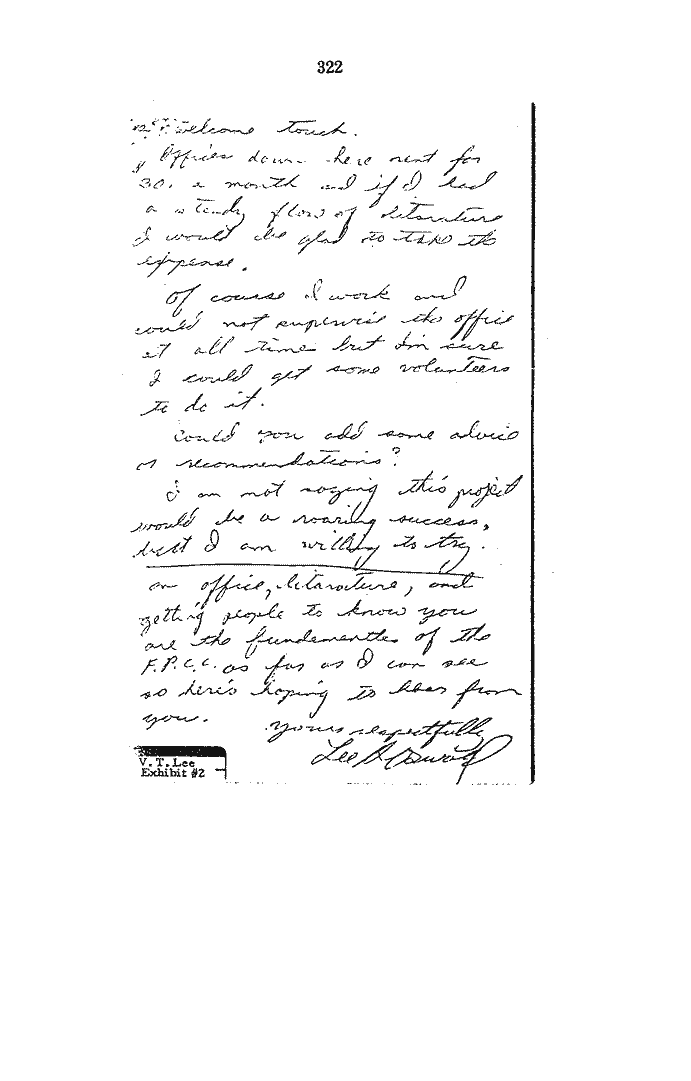 322
welcome touch.
Offices down here rent for
30. a month and if I had
a steady flow of litarature
I would be glad to take the
expense.
Of course I work and
could not supervise the office
at all time but I'm sure
I could get some volunteers
to do it.
Could you add some advice
or recommendations?
I am not saying this project
would be a roaring success,
but I am willing to try.
an office, litarature, and
getting people to know you
are the fundementles of the
F.P.C.C. as far as I can see
so here's hoping to hear from
you.
yours respectfully
Lee H. Oswald
V. T. Lee
Exhibit #2